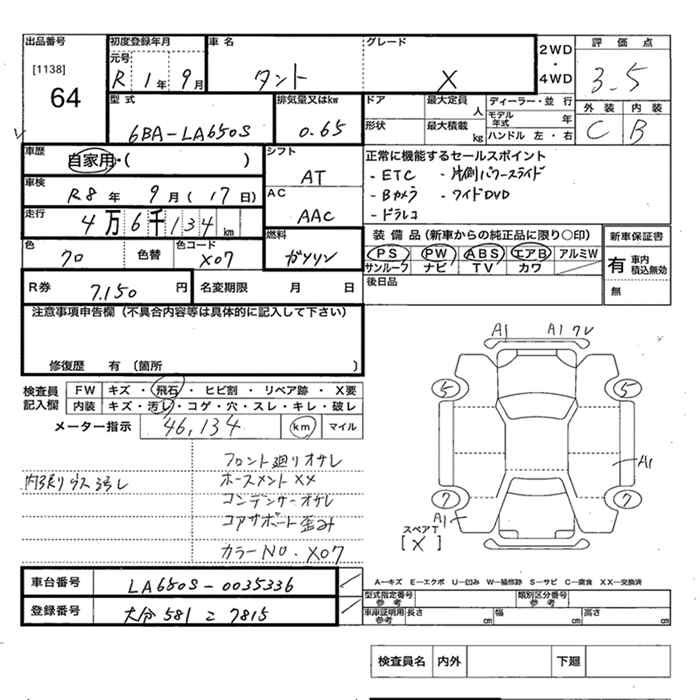 出品番号 初度登録年月 車名 グレード 評価点
[1138] 元号
64 R 1年 9月 タント X 2WD・4WD 3.5
型式 排気量又はkw ドア 最大定員 人 ディーラー・並行 外装 内装
6BA-LA650S 0.65 形状 最大積載 kg モデル年式 年 C B
ハンドル 左・右
車歴 自家用・( ) シフト AT 正常に機能するセールスポイント
車検 R8年 9月 (17日) AC AAC - ETC - 片側パワースライド
- Bカメラ - ワイドDVD
- ドラレコ
走行 4万6千134km
色 クロ 色替 色コード X07 燃料 ガソリン 装備品 (新車からの純正品に限り○印) 新車保証書
PS PW ABS エアB アルミW 有 車内積込無効
サンルーフ ナビ TV カワ 無
R券 7.150円 名変期限 月 日 後日品
注意事項申告欄 (不具合内容等は具体的に記入して下さい)
修復歴 有 〔箇所 〕
検査員記入欄 FW キズ・飛石・ヒビ割・リペア跡・X要
内装 キズ・汚し・コゲ・穴・スレ・キレ・破レ
メーター指示 46,134 km マイル
A1 A1 ワレ
5 5
A1
7 7
A1
スペアT
[X]
フロント廻りオサレ
ホースメントXX
コンデンサーオサレ
コアサポート歪み
カラーNO. X07
車台番号 LA650S-0035336
登録番号 大分 581 こ 7815
A―キズ E―エクボ U―凹み W―補修跡 S―サビ C―腐食 XX―交換済
型式指定番号 参考 類別区分番号 参考
車庫証明用 参考 長さ cm 幅 cm 高さ cm
検査員名 内外 下廻